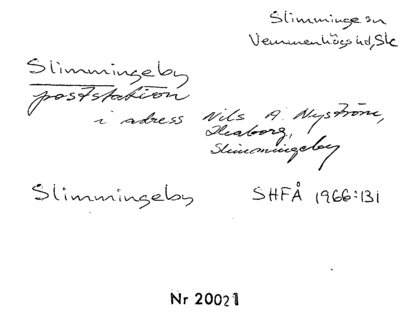 Slimminge sn
Vemmenhögs hd, Sk
Slimmingeby
poststation
i adress Nils A. Nyström,
Slimmingeby
Slimmingeby SHFÅ 1966:131
Nr 20021